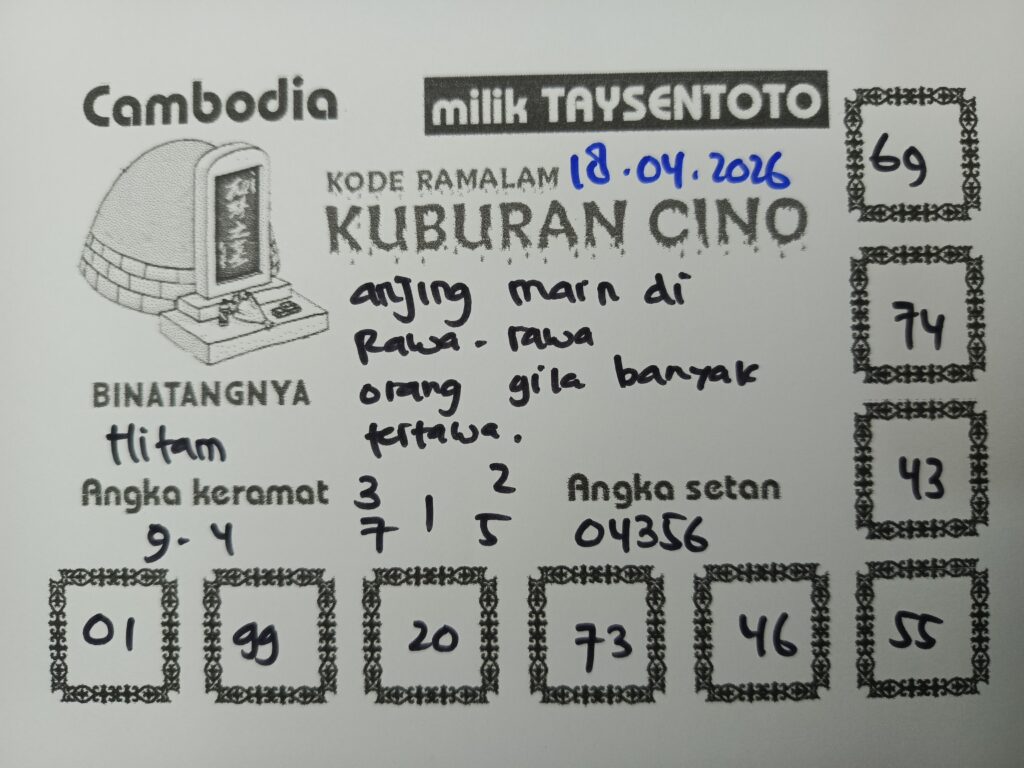 Cambodia
milik TAYSENTOTO
KODE RAMALAM 18.04.2026
KUBURAN CINO
anjing marn di
Rawa - rawa
orang gila banyak
tertawa.
BINATANGNYA
Hitam
Angka keramat
9 - 4
3 2
1
7 5
Angka setan
04356
69
74
43
01 99 20 73 46 55